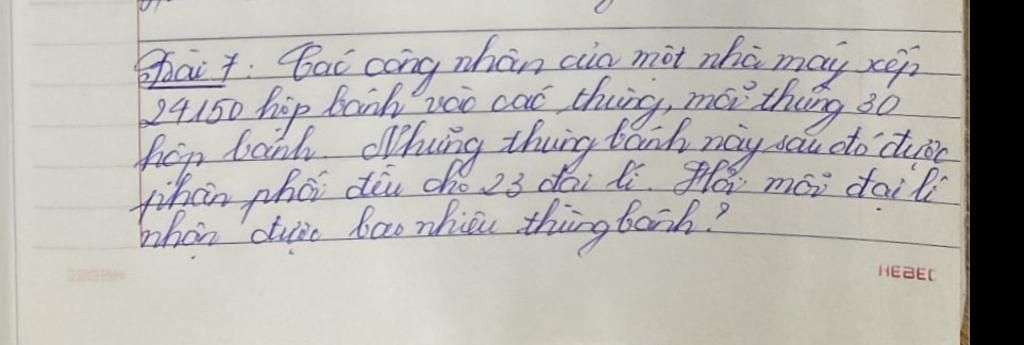 Bài 7. Các công nhân của một nhà máy xếp
24150 hộp bánh vào các thùng, mỗi thùng 30
hộp bánh. Những thùng bánh này sau đó được
phân phối đều cho 23 đại lí. Hỏi mỗi đại lí
nhận được bao nhiêu thùng bánh?
HEBEC